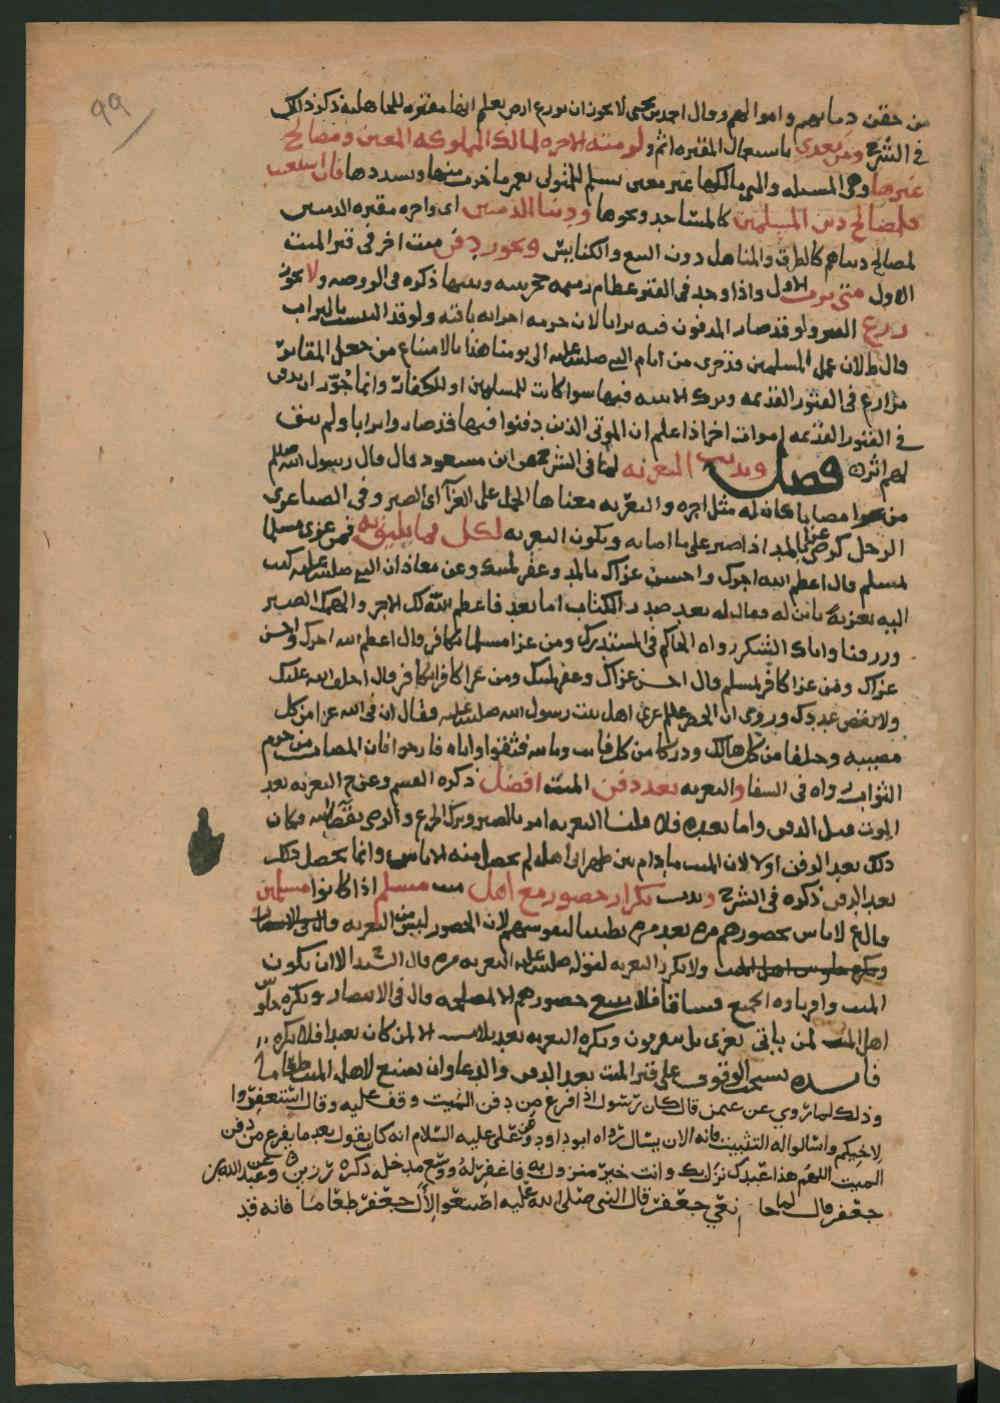 99
من حقن دمايهم واموالهم وقال احمد بن يحيى لا يجوز ان يزرع ارض يعلم انها مقبره للجاهلية ذكر ذلك
في الشرح ومن تعدى باستعمال المقبره اثم ولزمته الاجره لمالك المملوكه المعين ومصالح
غيرها وهي المسبله والتي مالكها غير معين تسلم للمتولي يعمر ما خرب منها ويسددها فان استغنت
فلمصالح دين المسلمين كالمساجد ونحوها ودنيا الذميين اي واجره مقبره الذميين
لمصالح دنياهم كالطرق والمناهل دون البيع والكنايس ويجوز دفن ميت اخر في قبر الميت
الاول متى ترب الاول واذا وجد في القبر عظام رميمه ذكره في الروضه ولا يجوز
زرع القبر ولو قد صار المدفون فيه ترابا لان حرمه اجزايه باقيه ولو قد التبست بالتراب
قال ط لان عمل المسلمين قد جرى من ايام النبي صلى الله عليه الى يومنا هذا بالامتناع من جعل المقابر
مزارع في القبور القديمه وترك الابنيه فيها سوا كانت للمسلمين او للكفار وانما جوز ان يدفن
في القبور القديمه اموات اخر اذا علم ان الموتى الذين دفنوا فيها قد صاروا ترابا ولم يبق
لهم اثر فصل وندب التعزيه لما في الشرح عن ابن مسعود قال قال رسول الله صلعم
من عزا مصابا كان له مثل اجره والتعزيه معناها الحمل على العزآ اي الصبر وفي الضيا عزي
الرجل كرضي بالمد اذا صبر على ما اصابه ويكون التعزيه لكل بما يليق به فمن عزى مسلما
لمسلم قال اعظم الله اجرك واحسن عزاك بالمد وغفر لميتك وعن معاذ ان النبي صلى الله عليه كتب
اليه يعزيه بابن له فقال له بعد صدر الكتاب اما بعد فاعظم الله لك الاجر والهمك الصبر
ورزقنا واياك الشكر رواه الحاكم في المستدرك ومن عزا مسلما بكافر قال اعظم الله اجرك واحسن
عزاك ومن عزا كافر لمسلم قال احسن عزاك وغفر لميتك ومن عزا كافرا بكافر قال اخلف الله عليك
ولا نقص عددك وروى ان الخضر علم عزى اهل بيت رسول الله صلى الله عليه وقال ان في الله عزا من كل
مصيبه وخلفا من كل هالك ودركا من كل فايت وبالله فثقوا واياه فارجوا فان المصاب من حرم
الثواب رواه في الشفا والتعزيه بعد دفن الميت افضل ذكره القسم وعن ح التعزيه بعد
الموت قبل الدفن واما بعده فلا قلنا التعزيه امر بالصبر وترك الجزع والرضى بقضا الله فكان
ذلك بعد الدفن اولا لان الميت ما دام بين ظهراني اهله لم يحصل منه الاياس وانما يحصل ذلك
بعد الدفن ذكره في الشرح وندب تكرار حضور مع اهل ميت مسلم اذا كانوا مسلمين
قال ع لا باس بحضورهم مره بعد مره تطييبا لنفوسهم لان الحضور ليس من التعزيه
ولا تكرر التعزيه لقوله صلى الله عليه التعزيه مره قال الا ان يكون
الميت واقرباوه الجميع فساقا فلا حضورهم الا لمصلحه قال في الانتصار ويكره جلوس
اهل الميت لمن ياتي يعزي بل يتفرقون ويكره التعزيه بعد ثلاث الا لمن كان بعيدا فلا يكره
فايده يستحب الوقوف على قبر الميت بعد الدفن والدعا وان يصنع لاهل الميت طعاما
وذلك لما روي عن عثمن قال كان رسول اذا افرغ من دفن الميت وقف عليه وقال استغفروا
لاخيكم واسالوا له التثبيت فانه الان يسال رواه ابو داود وعن علي عليه السلام انه كان يقول بعد ما يفرغ من دفن
الميت اللهم هذا عبدك نزل بك وانت خير منزول به فاغفر له ووسع مدخله ذكره رزين وعن عبد الله بن
جعفر قال لما جا نعي جعفر قال النبي صلى الله عليه اصنعوا لال جعفر طعاما فانه قد